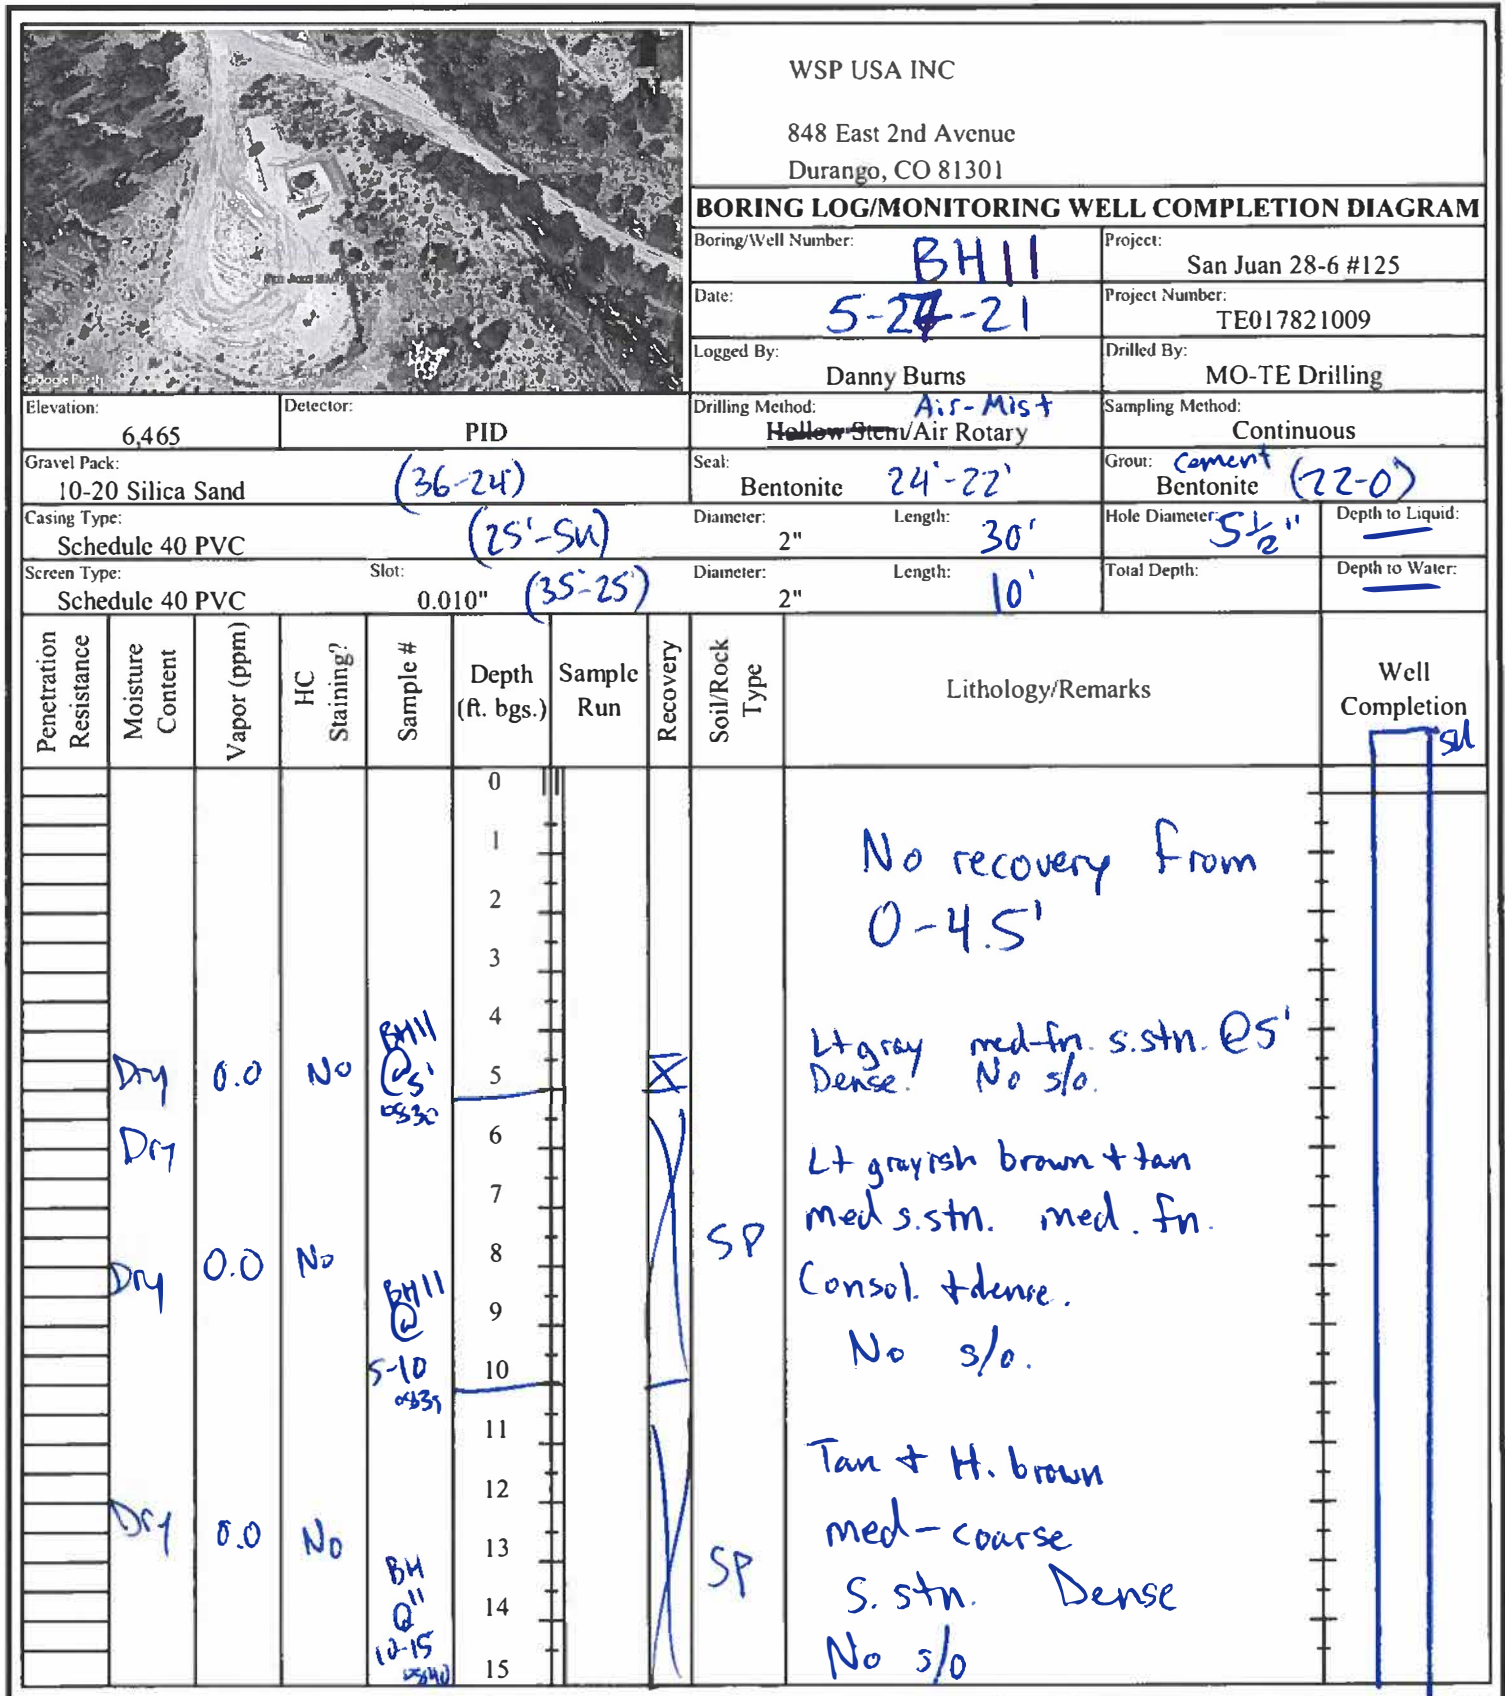 WSP USA INC
848 East 2nd Avenue
Durango, CO 81301
BORING LOG/MONITORING WELL COMPLETION DIAGRAM
Boring/Well Number: BH11
Project: San Juan 28-6 #125
Date: 5-27-21
Project Number: TE017821009
Logged By: Danny Burns
Drilled By: MO-TE Drilling
Google Earth
Elevation: 6,465
Detector: PID
Drilling Method: Air-Mist
Hollow Stem/Air Rotary
Sampling Method: Continuous
Gravel Pack: 10-20 Silica Sand (36-24')
Seal: Bentonite 24'-22'
Grout: Cement
Bentonite (22-0')
Casing Type: Schedule 40 PVC (25'-SU)
Diameter: 2"
Length: 30'
Hole Diameter: 5 1/2"
Depth to Liquid:
Screen Type: Schedule 40 PVC
Slot: 0.010" (35'-25')
Diameter: 2"
Length: 10'
Total Depth:
Depth to Water:
Penetration Resistance
Moisture Content
Vapor (ppm)
HC Staining?
Sample #
Depth (ft. bgs.)
Sample Run
Recovery
Soil/Rock Type
Lithology/Remarks
Well Completion
SU
0
1
No recovery from
2
0-4.5'
3
4
Dry 0.0 No BH11 @ 5' 0830
5
Lt gray med-fn. s.stn. @5'
Dense. No s/o.
6
Dry
Lt grayish brown + tan
7
med s.stn. med. fn.
8
Dry 0.0 No SP
Consol. + dense.
9
BH11 @ 5-10
No s/o.
10
11
Tan + lt. brown
12
Dry 0.0 No
med-coarse
13
BH 11 @ 10-15 0840
SP
S. stn. Dense
14
No s/o
15